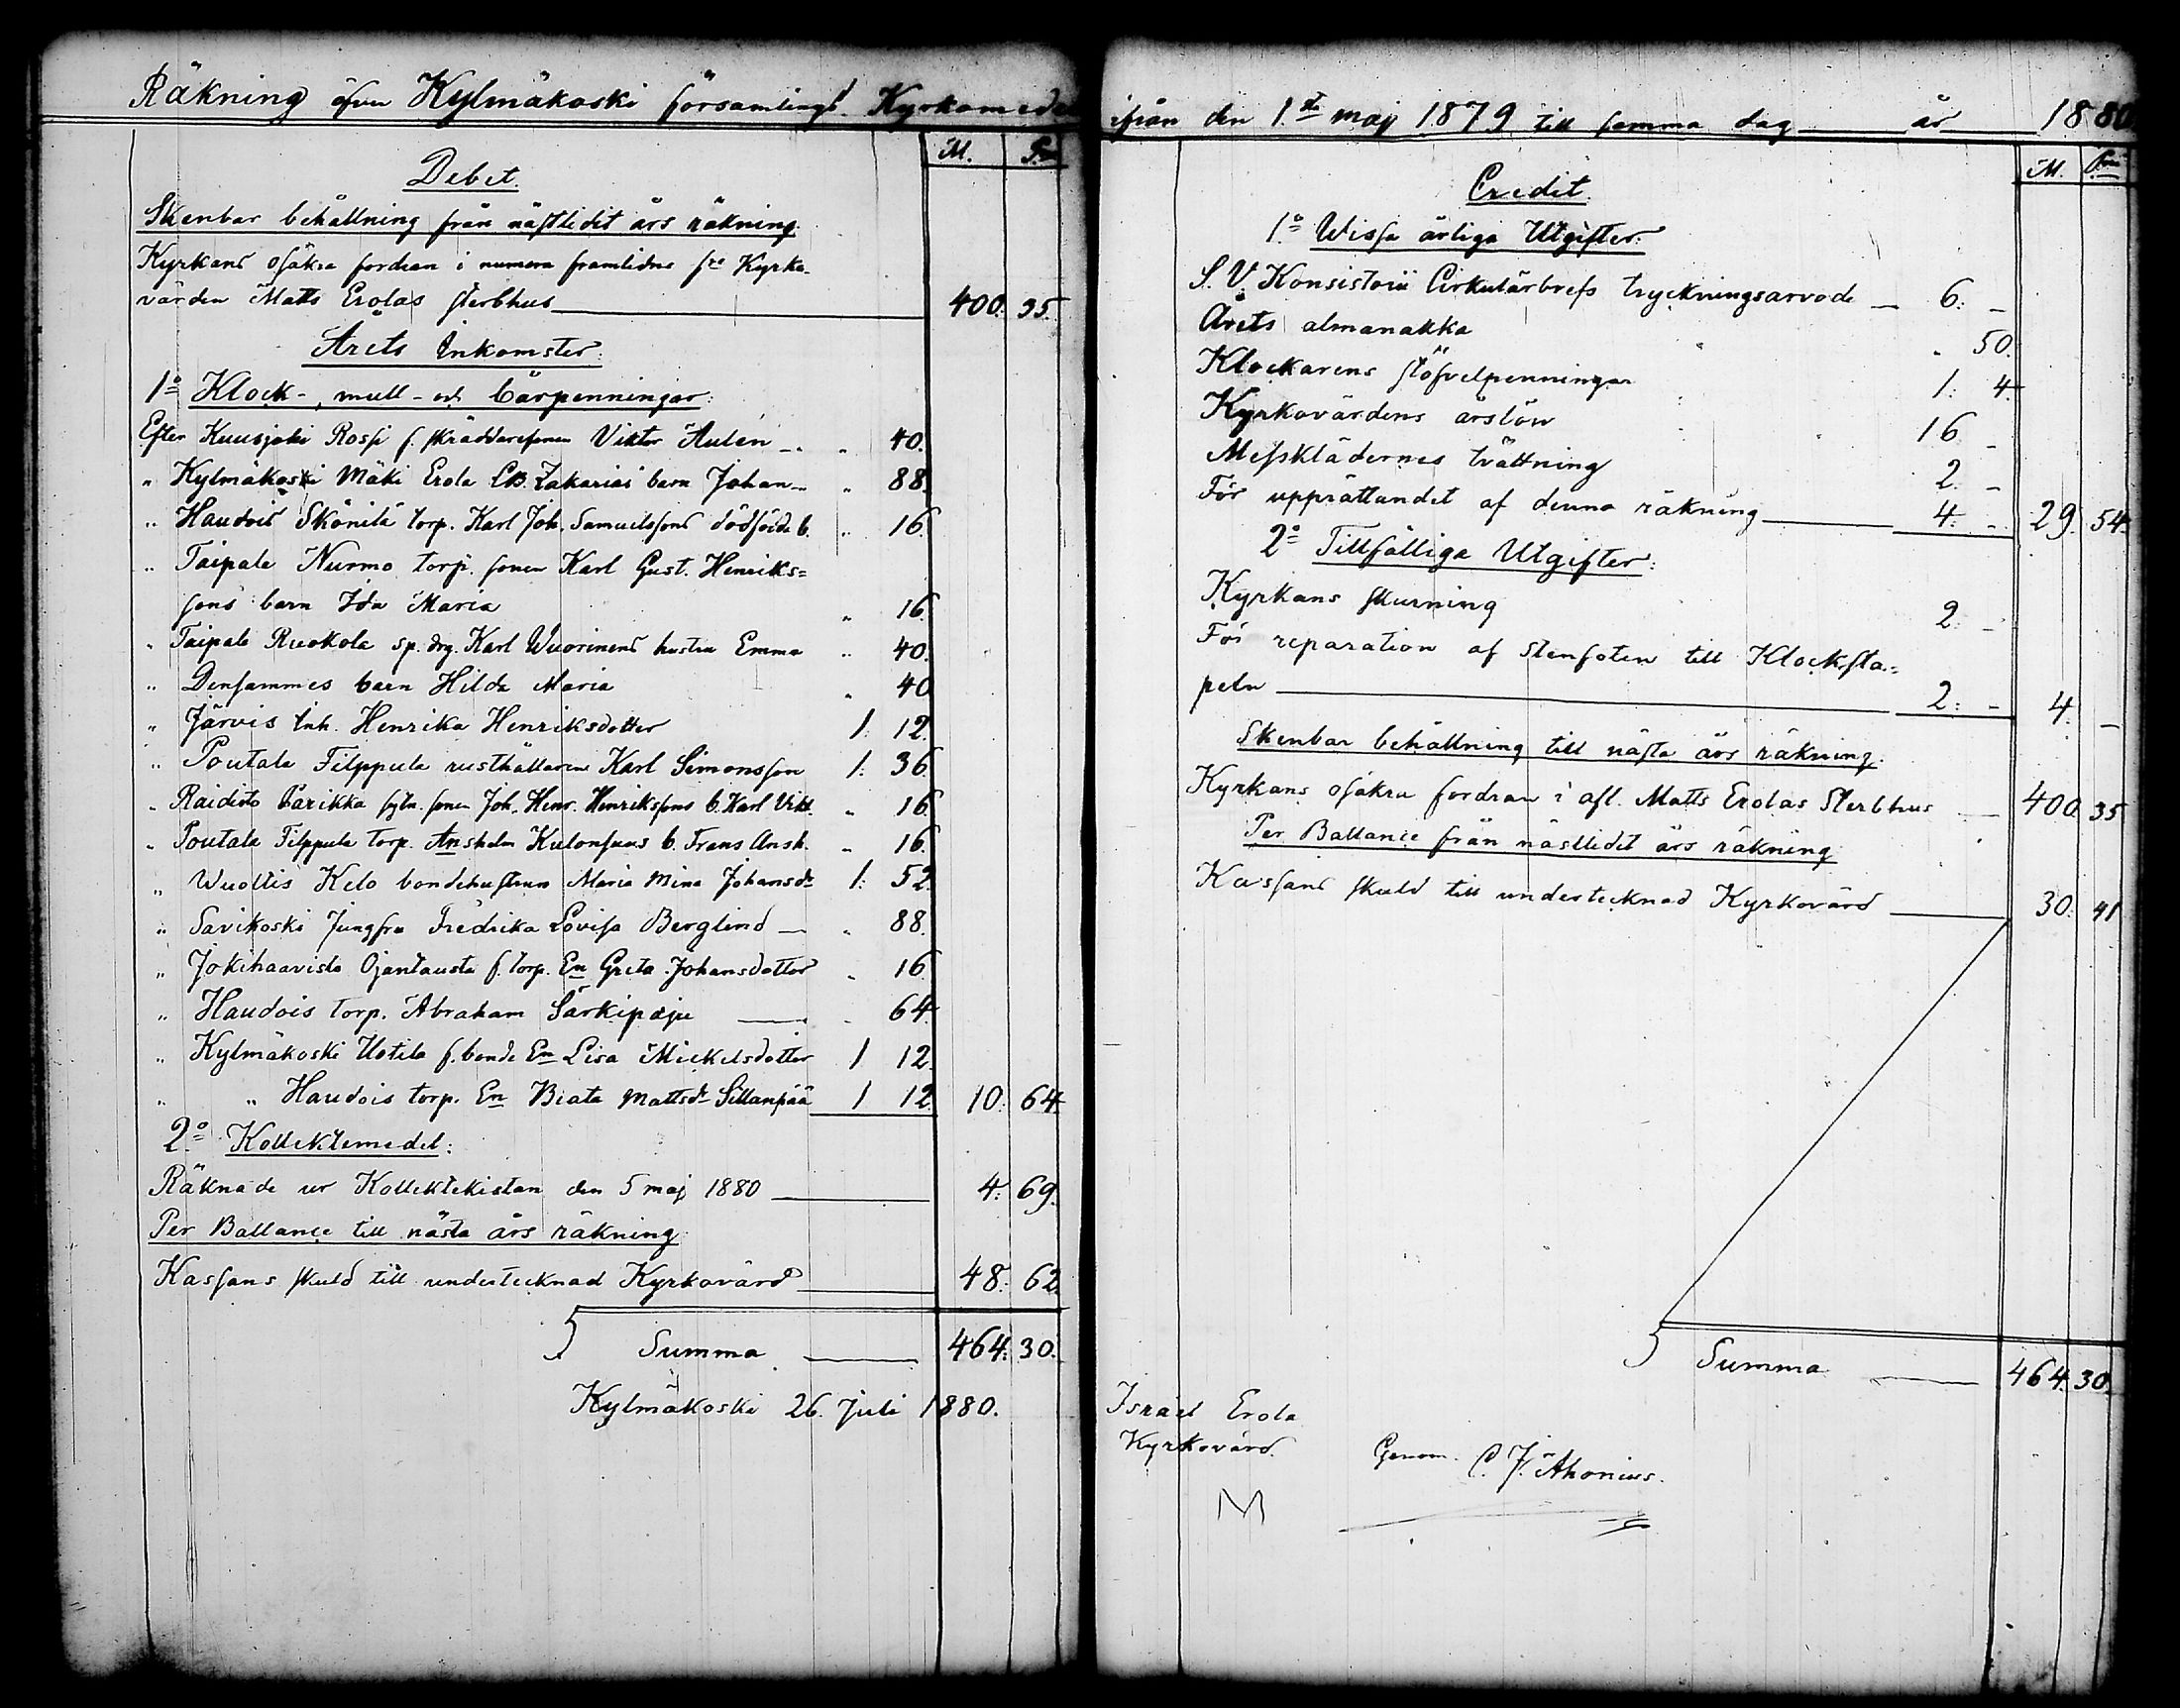 Räkning öfver Kylmäkoski församlings Kyrkomedel
M. P:ni
Debet.
Skenbar behållning från nästlidit års räkning.
Kyrkans osäkra fordran i numera framlidne f:re Kyrko-
värden Matts Erolas sterbhus 400. 35.
Årets Inkomster:
1:o Klock-, mull- och bårpenningar:
Efter Kuusjoki Rossi f. skräddaresonen Viktor Aulén " 40.
" Kylmäkoski Mäki Erola LB. Zakarias barn Johan " 88.
" Haudois Skönilä torp. Karl Joh. Samuelssons dödfödde b. " 16.
" Taipale Nurmo torp. sonen Karl Gust. Henriks=
sons barn Ida Maria " 16.
" Taipale Ruokola sp. drg. Karl Wuorinens hustru Emma " 40.
" Densammes barn Hilda Maria " 40
" Järvis Inh. Henrika Henriksdotter 1. 12.
" Poutala Filppula rusthållaren Karl Simonsson 1. 36.
" Raidisto Parikka sytn. sonen Joh. Henr. Henrikssons b. Karl Vikt. " 16.
" Poutala Filppula torp. Anshelm Kulonsuus b. Frans Ansh. " 16.
" Wuoltis Kelo bondehustrun Maria Mina Johansdr 1. 52.
" Savikoski Jungfru Fredrika Lovisa Berglind " 88.
" Jokihaavisto Ojantausta f. torp. En Greta Johansdotter " 16.
" Haudois torp. Abraham Särkipaju " 64.
" Kylmäkoski Uotila f. bonde En Lisa Mickelsdotter 1 12.
" " Haudois torp. En Biata Mattsdr Sillanpää 1 12. 10. 64.
2:o Kollektemedel:
Räknade ur Kollektekistan den 5 maj 1880 4. 69.
Per Ballance till nästa års räkning
Kassans skuld till undertecknad Kyrkovärd 48. 62.
Summa 464. 30.
Kylmäkoski 26. Juli 1880.
ifrån den 1.sta maj 1879 till samma dag år 1880
M. P:ni
Credit.
1:o Wissa årliga Utgifter:
S. V. Konsistorii Cirkulärbrefs tryckningsarvode 6. –
Årets almanakka " 50.
Klockarens stöfvelpenningar 1. 4.
Kyrkovärdens årslön 16 –
Messklädernes tvättning 2. –
För upprättandet af denna räkning 4. – 29. 54.
2:o Tillfälliga Utgifter:
Kyrkans skurning 2. –
För reparation af stenfoten till Klocksta=
peln 2. – 4. –
Skenbar behållning till nästa års räkning.
Kyrkans osäkra fordran i afl. Matts Erolas Sterbhus 400. 35
Per Ballance från nästlidit års räkning
Kassans skuld till undertecknad Kyrkovärd 30. 41
Summa 464. 30.
Israel Erola
Kyrkovärd.
Genom. C. J. Ahonius.